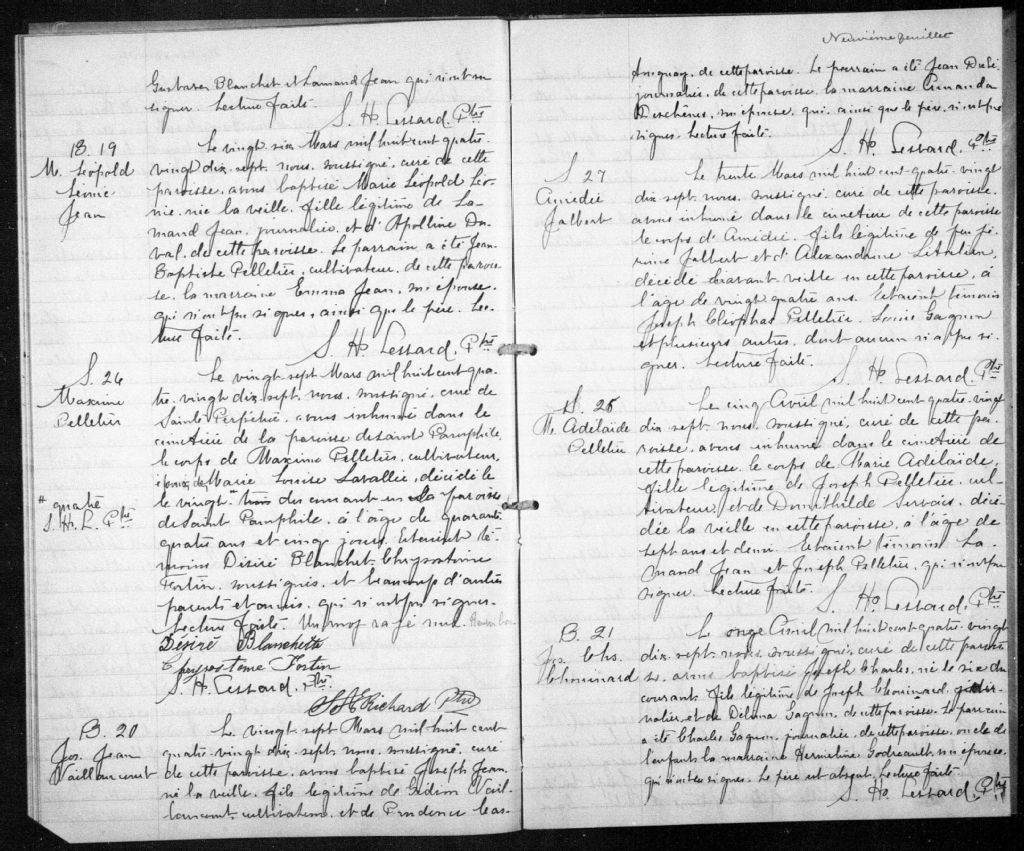 Gustave Blanchet et Lamand Jean qui n'ont su
signer. Lecture faite.
S. H. Lessard, Ptre
B. 19
M. Léopold
Léonie
Jean
Le vingt six Mars mil huit cent quatre
vingt dix-sept, nous, soussigné, curé de cette
paroisse, avons baptisé Marie Léopold Léo-
nie, née la veille, fille légitime de La-
mand Jean, journalier, et d'Apolline Du-
val, de cette paroisse. Le parrain a été Jean
Baptiste Pelletier, cultivateur, de cette parois-
se, la marraine Emma Jean, son épouse,
qui n'ont pu signer, ainsi que le père. Lec-
ture faite.
S. H. Lessard, Ptre
S. 24
Maxime
Pelletier
Le vingt sept Mars mil huit cent qua-
tre-vingt dix-sept, nous, soussigné, curé de
Sainte Perpétue, avons inhumé dans le
cimetière de la paroisse de Saint Pamphile,
le corps de Maxime Pelletier, cultivateur,
époux de Marie Louise Lavallée, décédé le
le vingt " trois du courant en la paroisse
de Saint Pamphile, à l'âge de quarante
quatre ans et cinq jours. Etaient té-
moins Désiré Blanchet, Chrysostome
Fortin, soussignés, et beaucoup d'autres
parents et amis, qui n'ont pu signer.
Lecture faite. Un mot rayé nul.
" quatre
S. H. L. Ptre
Désiré Blanchette
Chrysostome Fortin
S. H. Lessard, Ptre
Richard Ptre
B. 20
Jos. Jean
Vaillancourt
Le vingt sept Mars mil huit cent
quatre-vingt dix-sept, nous, soussigné, curé
de cette paroisse, avons baptisé Joseph Jean,
né la veille, fils légitime de Gédéon Vail-
lancourt, cultivateur, et de Prudence Cas-
Neuvième feuillet
tonguay, de cette paroisse. Le parrain a été Jean Dubé
journalier, de cette paroisse, la marraine
Deschênes, son épouse, qui, ainsi que le père, n'ont pu
signer. Lecture faite.
S. H. Lessard, Ptre
S 27
Amédée
Jalbert
Le trente Mars mil huit cent quatre-vingt
dix-sept, nous, soussigné, curé de cette paroisse,
avons inhumé dans le cimetière de cette paroisse
le corps d'Amédée, fils légitime de feu Fé-
rine Jalbert et d'Alexandrine Litalien,
décédé l'avant-veille en cette paroisse, à
l'âge de vingt quatre ans. Etaient témoins
Joseph Cléophas Pelletier, Louis Gagnon
et plusieurs autres, dont aucun n'a pu si-
gner. Lecture faite.
S. H. Lessard, Ptre
S. 25
M. Adelaïde
Pelletier
Le cinq Avril mil huit cent quatre-vingt
dix-sept, nous, soussigné, curé de cette pa-
roisse, avons inhumé dans le cimetière de
cette paroisse, le corps de Marie Adelaïde,
fille légitime de Joseph Pelletier, cul-
tivateur, et de Domithilde Servais, décé-
dée la veille en cette paroisse, à l'âge de
sept ans et demi. Etaient témoins La-
mand Jean et Joseph Pelletier, qui n'ont pu
signer. Lecture faite.
S. H. Lessard, Ptre
B. 21
Jos. Chs.
Chouinard
Le onze Avril mil huit cent quatre-vingt
dix-sept, nous, soussigné, curé de cette parois-
se, avons baptisé Joseph Charles, né le six du
courant, fils légitime de Joseph Chouinard, jour-
nalier, et de Délima Gagnon, de cette paroisse. Le parrain
a été Charles Gagnon, journalier, de cette paroisse, oncle de
l'enfant, la marraine Herméline Godreault, son épouse,
qui n'ont su signer. Le père est absent. Lecture faite.
S. H. Lessard, Ptre